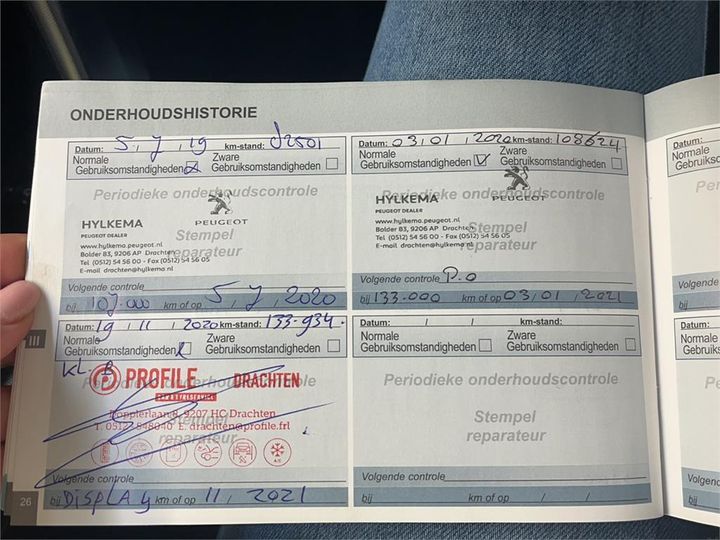 ONDERHOUDSHISTORIE
Datum: 5, 7, 19 km-stand: 82501
Normale Gebruiksomstandigheden Zware Gebruiksomstandigheden
Periodieke onderhoudscontrole
HYLKEMA PEUGEOT
PEUGEOT DEALER
www.hylkema.peugeot.nl
Bolder 83, 9206 AP Drachten
Tel (0512) 54 56 00 - Fax (0512) 54 56 05
E-mail drachten@hylkema.nl
Stempel reparateur
Volgende controle
bij 107.000 km of op 5 / 7 / 2020
Datum: 03, 01, 2020 km-stand: 108624
Normale Gebruiksomstandigheden V Zware Gebruiksomstandigheden
Periodieke onderhoudscontrole
HYLKEMA PEUGEOT
PEUGEOT DEALER
www.hylkema.peugeot.nl
Bolder 83, 9206 AP Drachten
Tel (0512) 54 56 00 - Fax (0512) 54 56 05
E-mail drachten@hylkema.nl
Stempel reparateur
Volgende controle P.o
bij 133.000 km of op 03/01/2021
III
Datum: 19, 11, 2020 km-stand: 133.934.
Normale Gebruiksomstandigheden Zware Gebruiksomstandigheden
KL B
Periodieke onderhoudscontrole
PROFILE DRACHTEN
CAR & TYRESERVICE
9207 HC Drachten
T. 0512 848040 E. drachten@profile.frl
Stempel reparateur
Volgende controle
bij DISPLAY km of op 11 / 2021
Datum: / / km-stand:
Normale Gebruiksomstandigheden Zware Gebruiksomstandigheden
Periodieke onderhoudscontrole
Stempel
reparateur
Volgende controle
bij km of op / /
26
Datum:
Normale
Gebruiksom
Volgende
bij
Datum:
Normale
Gebruiksom
Volgende
bij